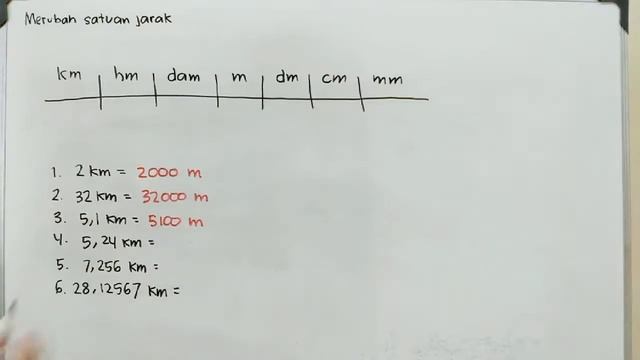 Merubah satuan jarak
km hm dam m dm cm mm
1. 2 km = 2000 m
2. 32 km = 32000 m
3. 5,1 km = 5100 m
4. 5,24 km =
5. 7,256 km =
6. 28,12567 km =